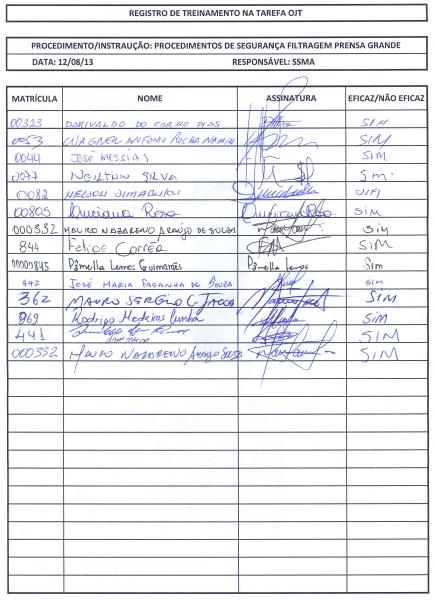 REGISTRO DE TREINAMENTO NA TAREFA OJT
PROCEDIMENTO/INSTRAUÇÃO: PROCEDIMENTOS DE SEGURANÇA FILTRAGEM PRENSA GRANDE
DATA: 12/08/13 RESPONSÁVEL: SSMA
MATRÍCULA NOME ASSINATURA EFICAZ/NÃO EFICAZ
00323 DORIVALDO DO CARMO DIAS SIM
0053 WAGNER ANTONIO ROCHA SIM
0044 JOSÉ MESSIAS SIM
0077 NEILTON SILVA Sm.
0082 NELSON SIM
00805 Luciana Rosa Luciana Rosa Sim
000332 MAURO NAZARENO ARAÚJO DE SOUZA Sim
844 Felipe Corrêa SIM
0000845 Pâmella Lemos Guimarães Pâmella Lemos Sim
442 JOSÉ MARIA FAÇANHA DE SOUZA SIM
362 MAURO SERGIO C. SIM
869 Rodrigo Medeiros Cunha SIM
441 SIM
000332 MAURO NAZARENO ARAUJO SOUZA SIM